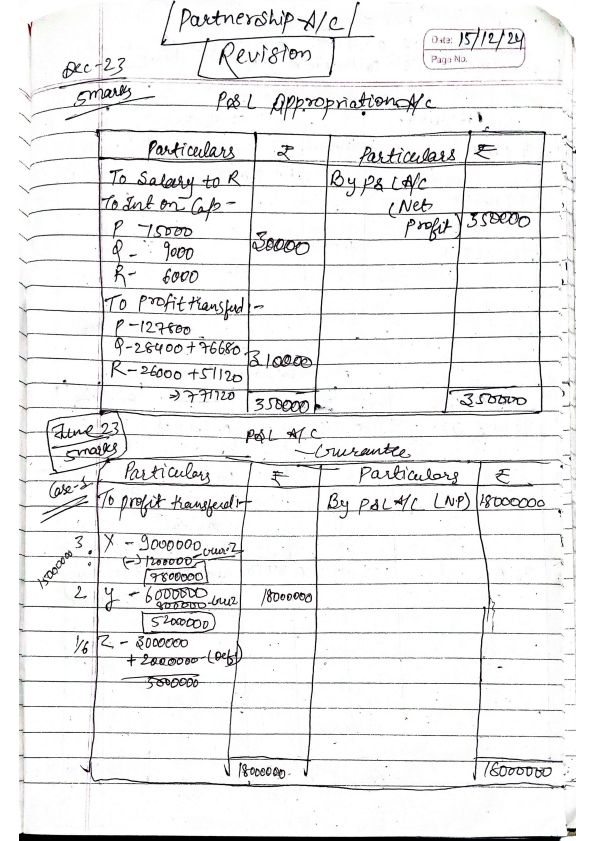 Partnership A/C
Revision
Date: 15/12/24
Page No.
Dec-23
5marks
P&L Appropriation A/c
Particulars ₹ Particulars ₹
To Salary to R By P&L A/C
To Int on Cap - (Net
P 15000 Profit) 350000
Q - 9000 30000
R - 6000
To Profit transferd :-
P - 127800
Q - 28400 + 76680 310000
R - 26000 + 51120
⇒ 771120
350000 350000
June 23
5marks
P&L A/C
- Gurantee
Case-1
Particulars ₹ Particulars ₹
To profit transferd :- By P&L A/C (NP) 18000000
15000000
3 X - 9000000
(-) 1200000
7800000
2 Y - 6000000 18000000
800000
5200000
1/6 Z - 3000000
+ 2000000 - (Def)
5000000
18000000 18000000